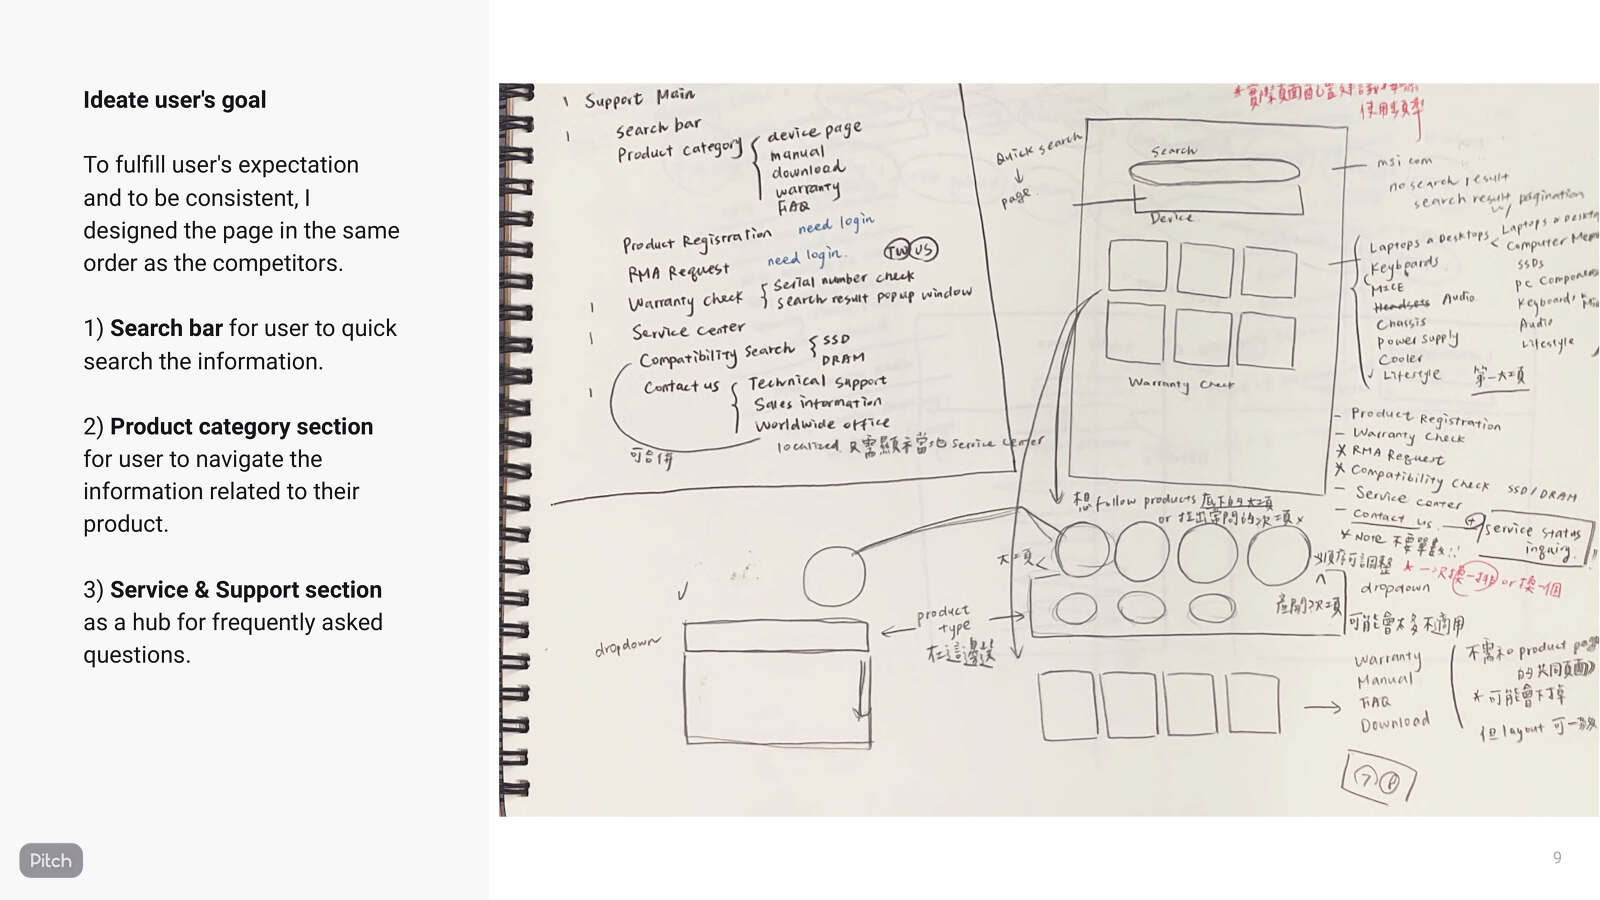 Ideate user's goal
To fulfill user's expectation
and to be consistent, I
designed the page in the same
order as the competitors.
1) Search bar for user to quick
search the information.
2) Product category section
for user to navigate the
information related to their
product.
3) Service & Support section
as a hub for frequently asked
questions.
Pitch
9
Support Main
search bar
Product category
device page
manual
download
warranty
FAQ
Product Registration need login
RMA Request need login. TW US
Warranty check
serial number check
search result popup window
Service center
Compatibility Search
SSD
DRAM
Contact us
Technical support
Sales information
Worldwide office
localized 只需顯示當地 service center
可合併
使用頻率
Quick search
page
Search
Device
Warranty Check
msi com
no search result
search result w/ pagination
Laptops & Desktops
Keyboards
MICE
Headsets Audio
Chassis
power supply
Cooler
Lifestyle
第一大項
Laptops & Deskto
Computer Mem
SSDs
PC Componen
Keyboards Mi
Audio
Lifestyle
- Product Registration
- Warranty Check
* RMA Request
* Compatibility Check SSD/DRAM
- Service center
- Contact us
service status
inquiry.
* NOTE
想 follow products 底下的大項
or
大項
dropdown
product
type
在這邊
dropdown
順序可調整
* 一次換一排 or 換一個
次項
可能會太多不適用
Warranty
Manual
FAQ
Download
不需和 product page
的共同頁面
* 可能會不掉
但 layout 可一致